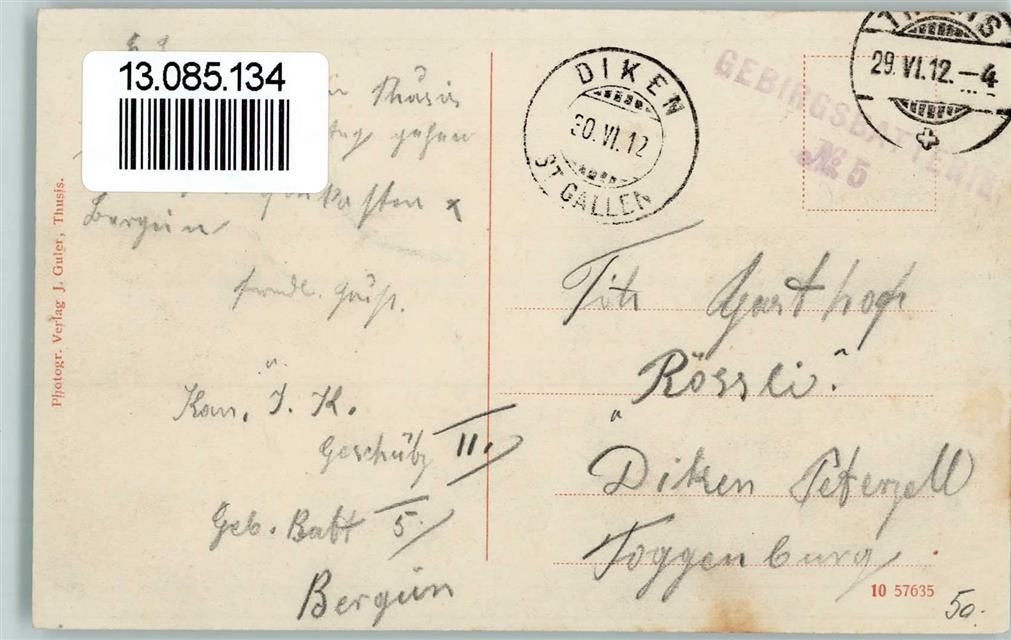 13.085.134
Thusis
gehen
Bergün
freundl. Gruss.
Kan. J. K.
Geschütz II.
Geb. Batt 5.
Bergün
Photogr. Verlag J. Guler, Thusis.
DIKEN
30.VI.12
ST GALLEN
GEBIRGSBATTERIE
№ 5
29.VI.12.-4
Tit. Gasthof
"Rössli"
Diken Peterzell
Toggenburg
10 57635
50.